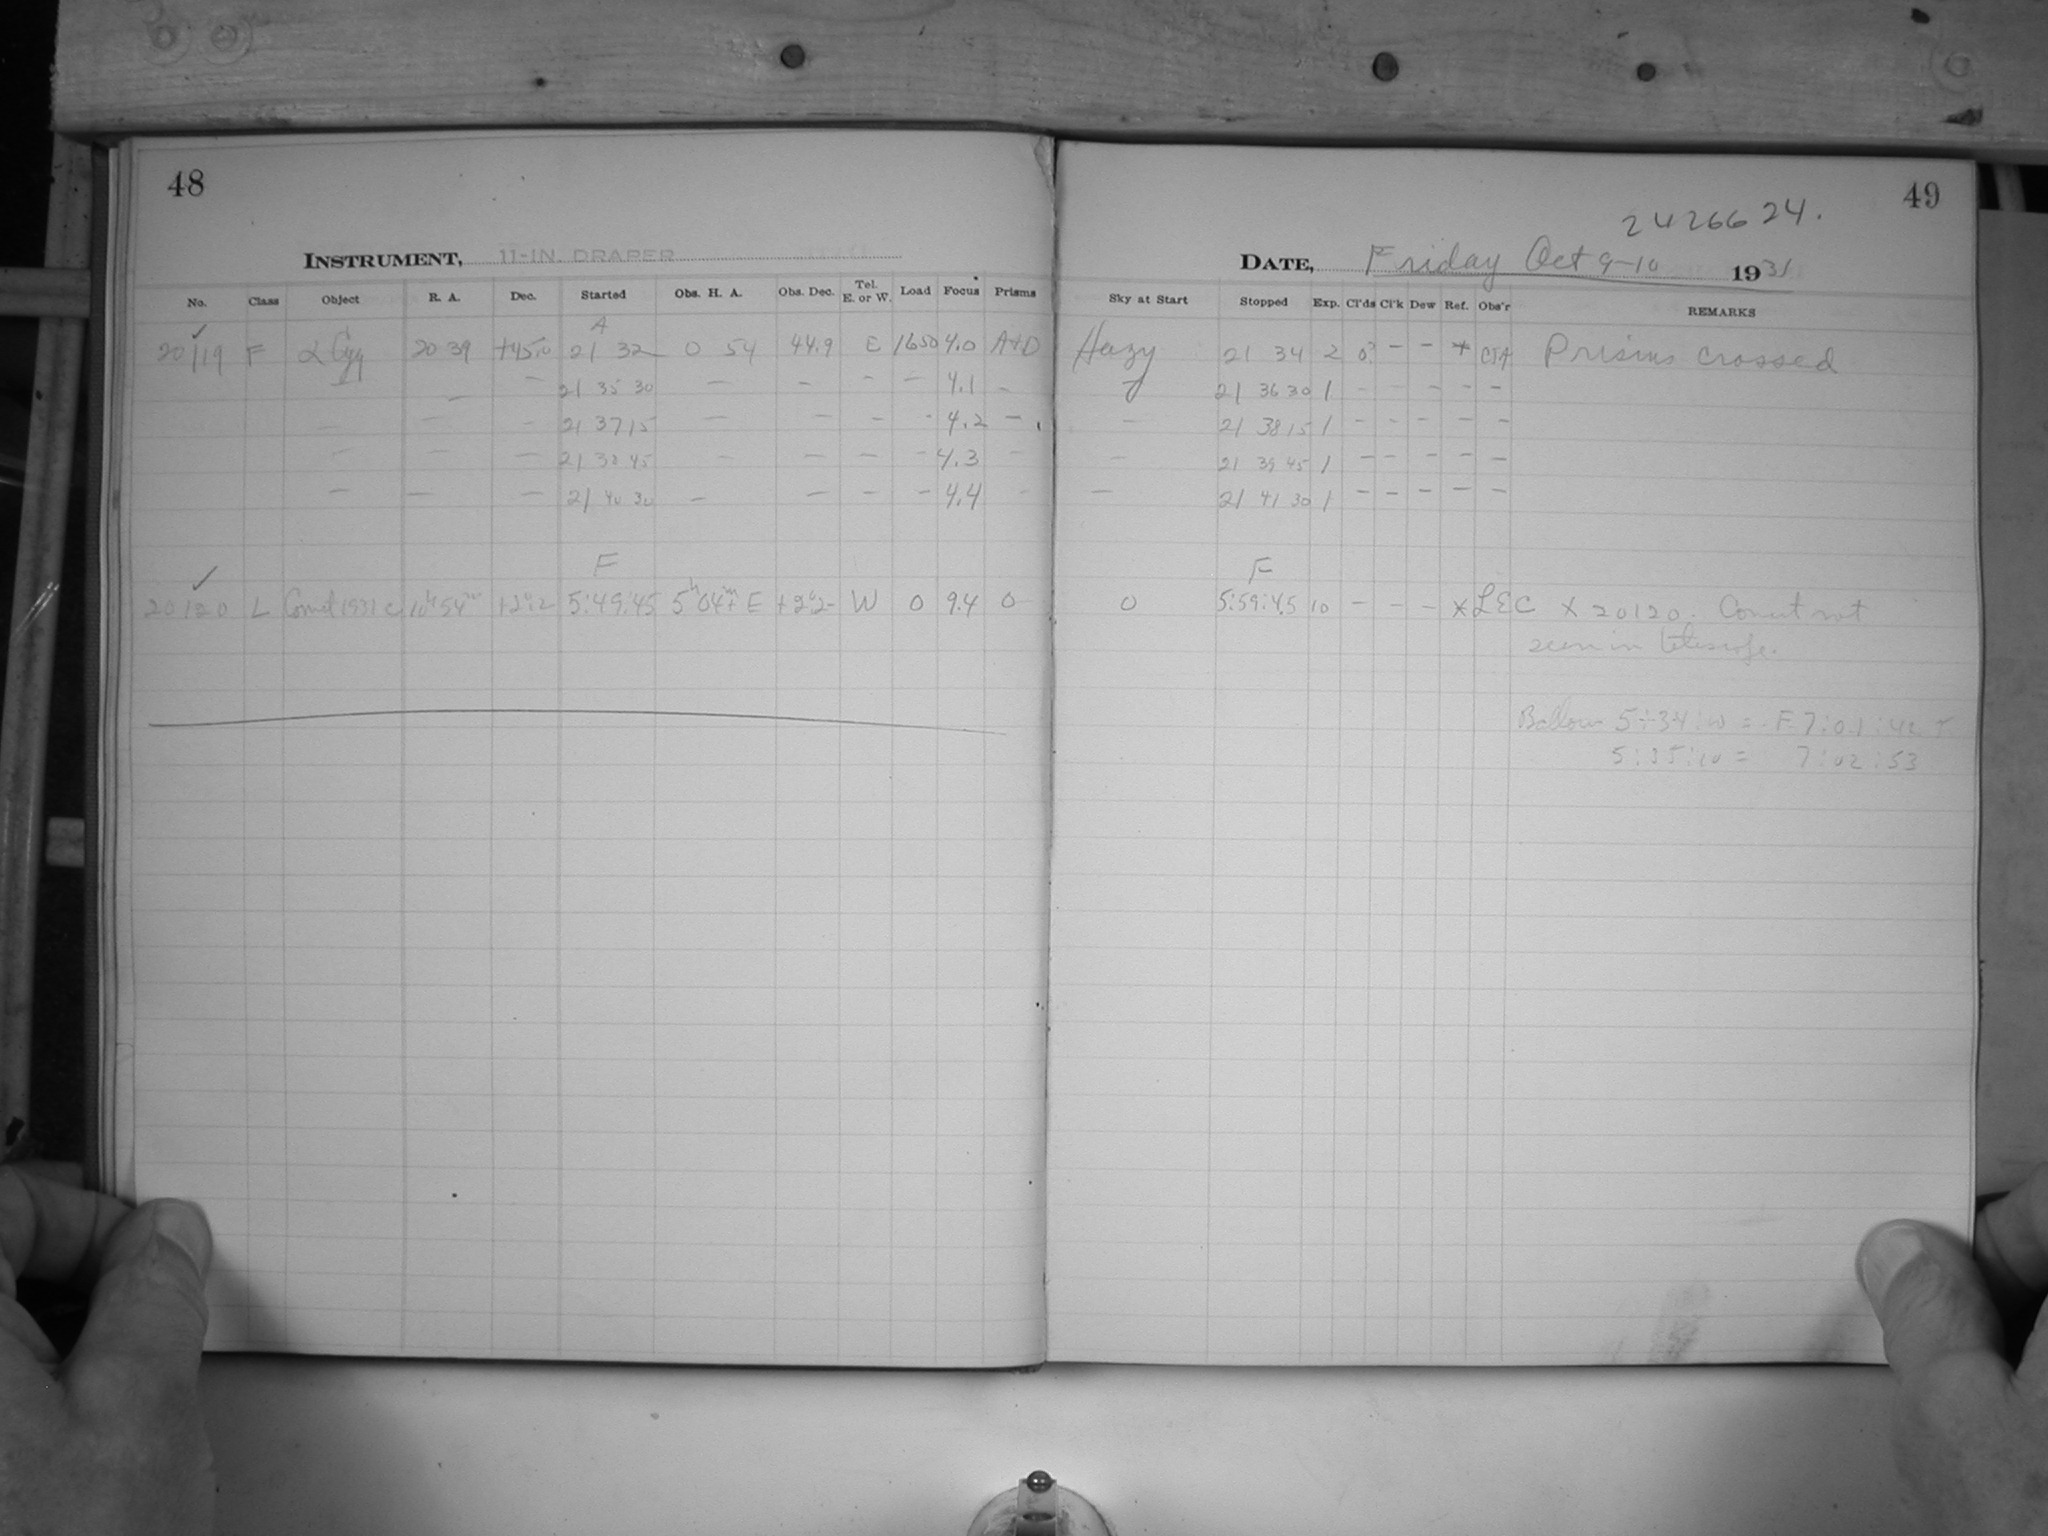 48
INSTRUMENT, 11-IN. DRAPER
No. Class Object R. A. Dec. Started Obs. H. A. Obs. Dec. Tel. E. or W. Load Focus Prisms
✓ A
20119 F α Cyg 20 39 +45.0 21 32 0 54 44.9 E 1650 4.0 A+D
— — 21 35 30 — — — — 4.1 —
— — — 21 37 15 — — — - 4.2 —
— — — 21 38 45 — — — - 4.3 —
— — — 21 40 30 — — — — 4.4 —
✓ F
20120 L Comet 1931 c 10h 54m +2°.2 5:49:45 5h 04m± E +2°.2 W 0 9.4 0
49
2426624.
DATE, Friday Oct 9-10 1931
Sky at Start Stopped Exp. Cl'ds Cl'k Dew Ref. Obs'r REMARKS
Hazy 21 34 2 — — * Prisms crossed
21 36 30 1 — — — — —
— 21 38 15 1 — — — — —
— 21 39 45 1 — — — — —
— 21 41 30 1 — — — — —
F
0 5:59:45 10 — — — * LEC × 20120. Comet not
seen in telescope.
5:34:10 = F 7:01:42
5:35:10 = 7:02:53